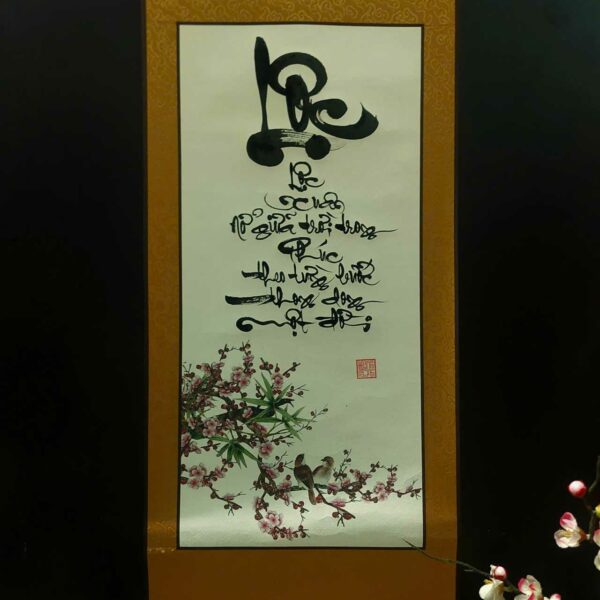 Lộc
Lộc
xuân
nở giữa trời trong
Phúc
theo từng bước
thong dong
một đời